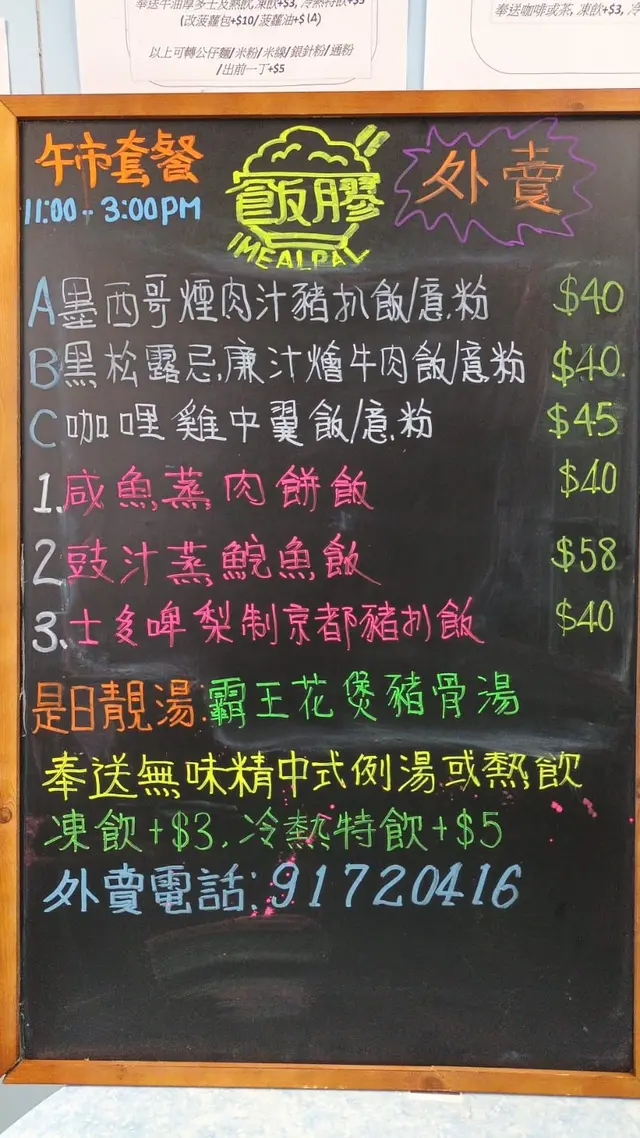 奉送牛油厚多士及熱飲,凍飲+$3, 冷熱特飲+$5
(改菠蘿包+$10/菠蘿油+$ (A)
以上可轉公仔麵/米粉/米線/銀針粉/通粉
/出前一丁+$5
奉送咖啡或茶, 凍飲+$3, 冷
午市套餐
11:00 - 3:00PM
飯膠
IMEALPAL
外賣
A墨西哥煙肉汁豬扒飯/意粉 $40
B黑松露忌廉汁燴牛肉飯/意粉 $40.
C咖哩雞中翼飯/意粉 $45
1.咸魚蒸肉餅飯 $40
2豉汁蒸鮑魚飯 $58
3.士多啤梨制京都豬扒飯 $40
是日靚湯:霸王花煲豬骨湯
奉送無味精中式例湯或熱飲
凍飲+$3,冷熱特飲+$5
外賣電話:91720416